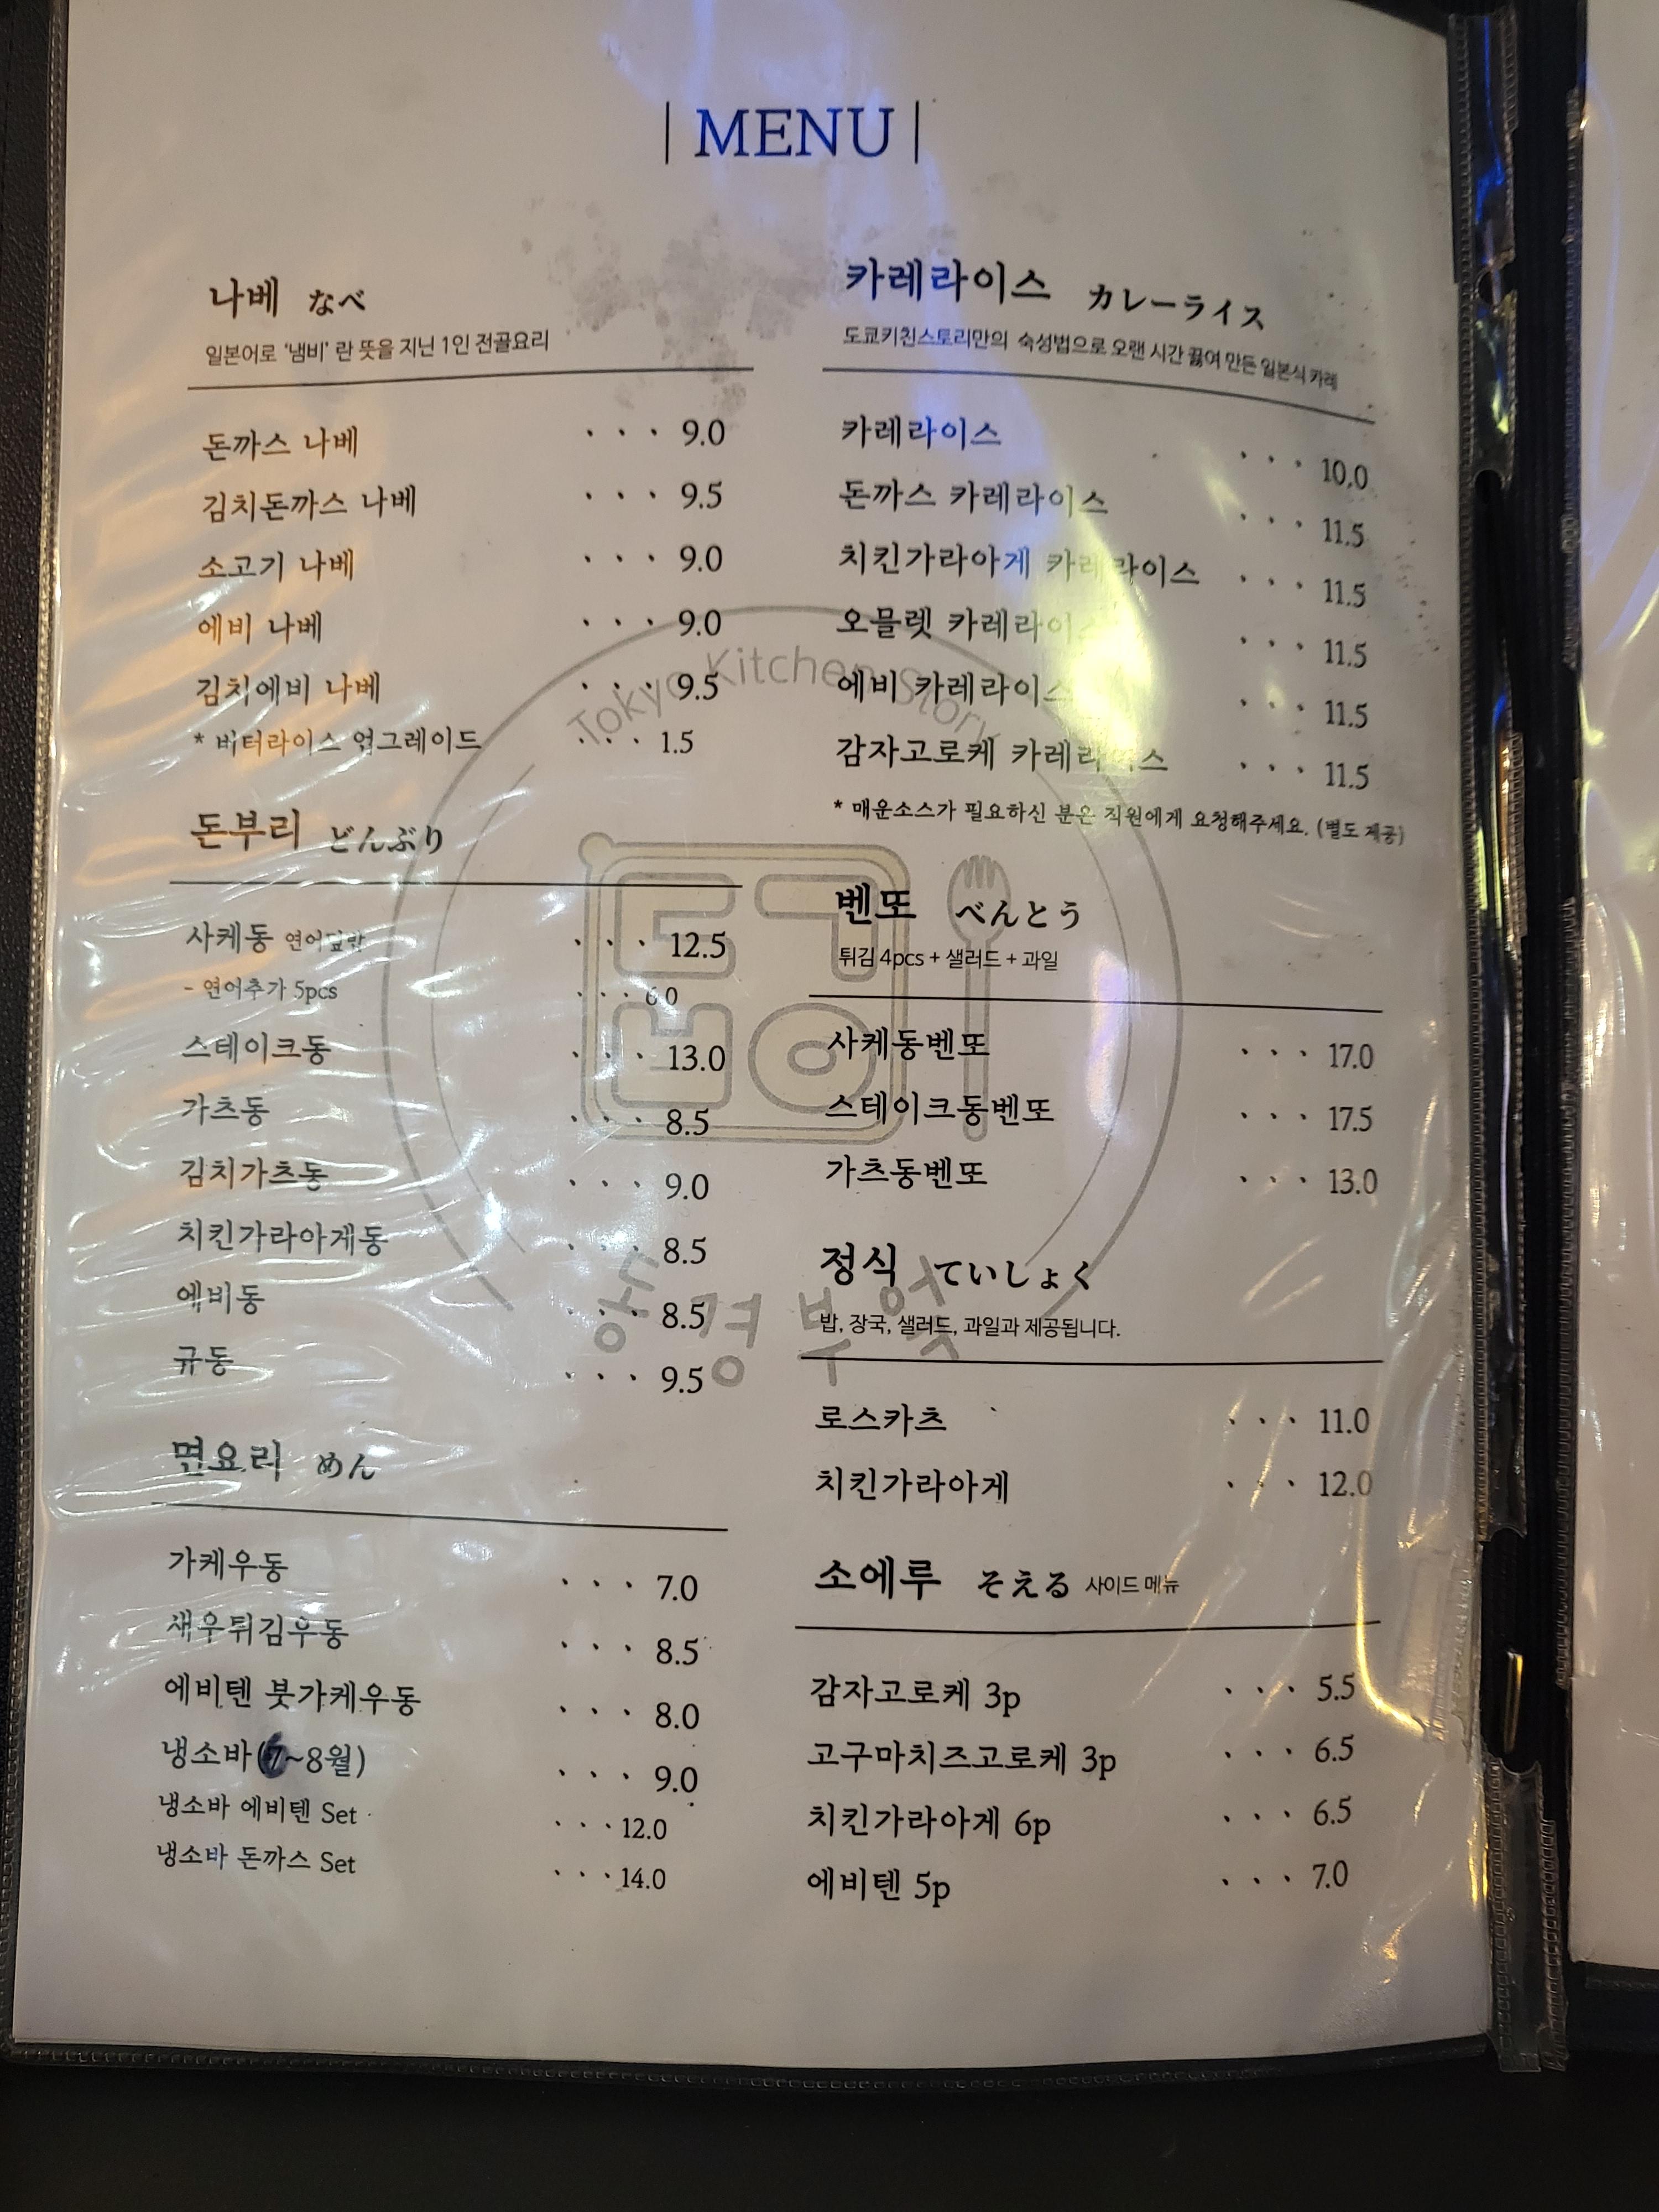 | MENU |
나베 なべ
일본어로 '냄비' 란 뜻을 지닌 1인 전골요리
돈까스 나베 · · · 9.0
김치돈까스 나베 · · · 9.5
소고기 나베 · · · 9.0
에비 나베 · · · 9.0
김치에비 나베 · · · 9.5
* 버터라이스 업그레이드 · · · 1.5
돈부리 どんぶり
사케동 연어덮밥 · · · 12.5
- 연어추가 5pcs · · · 6.0
스테이크동 · · · 13.0
가츠동 · · · 8.5
김치가츠동 · · · 9.0
치킨가라아게동 · · · 8.5
에비동 · · · 8.5
규동 · · · 9.5
면요리 めん
가케우동 · · · 7.0
새우튀김우동 · · · 8.5
에비텐 붓가케우동 · · · 8.0
냉소바(7~8월) · · · 9.0
냉소바 에비텐 Set · · · 12.0
냉소바 돈까스 Set · · · 14.0
카레라이스 カレーライス
도쿄키친스토리만의 숙성법으로 오랜 시간 끓여 만든 일본식 카레
카레라이스 · · · 10.0
돈까스 카레라이스 · · · 11.5
치킨가라아게 카레라이스 · · · 11.5
오믈렛 카레라이스 · · · 11.5
에비 카레라이스 · · · 11.5
감자고로케 카레라이스 · · · 11.5
* 매운소스가 필요하신 분은 직원에게 요청해주세요. (별도 제공)
벤또 べんとう
튀김 4pcs + 샐러드 + 과일
사케동벤또 · · · 17.0
스테이크동벤또 · · · 17.5
가츠동벤또 · · · 13.0
정식 ていしょく
밥, 장국, 샐러드, 과일과 제공됩니다.
로스카츠 · · · 11.0
치킨가라아게 · · · 12.0
소에루 そえる 사이드 메뉴
감자고로케 3p · · · 5.5
고구마치즈고로케 3p · · · 6.5
치킨가라아게 6p · · · 6.5
에비텐 5p · · · 7.0
Tokyo Kitchen Story
동경부엌